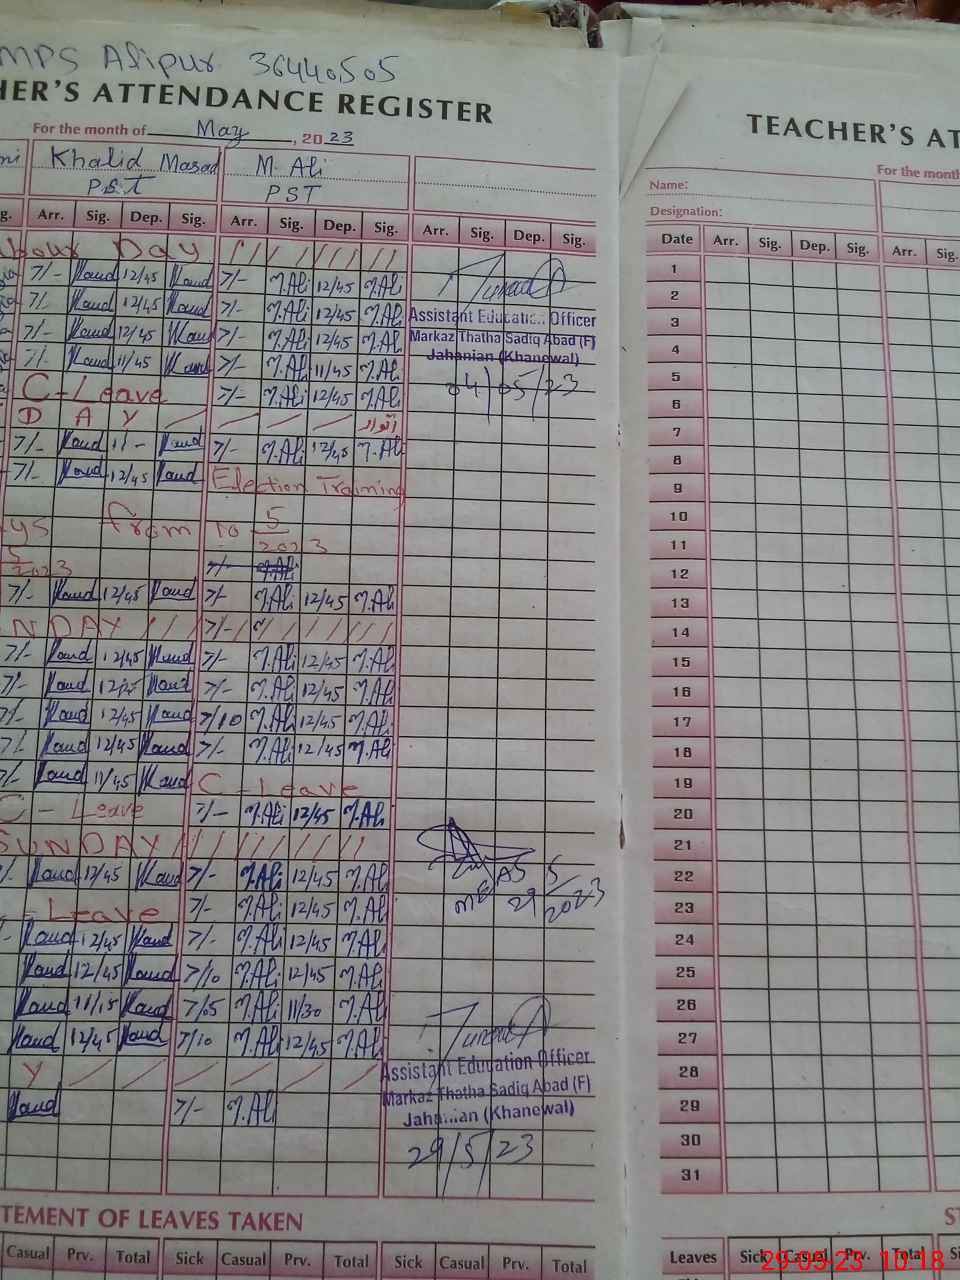 MPS Alipur 36440505
HER'S ATTENDANCE REGISTER
For the month of May, 2023
Khalid Masad M. Ali
PST PST
Arr. Sig. Dep. Sig. Arr. Sig. Dep. Sig. Arr. Sig. Dep. Sig.
bour Day
7/- 12/45 7/- M.Ali 12/45 M.Ali
7/- 12/45 7/- M.Ali 12/45 M.Ali
7/- 12/45 7/- M.Ali 12/45 M.Ali
7/- 11/45 7/- M.Ali 11/45 M.Ali
C-Leave 7/- M.Ali 12/45 M.Ali
DAY اتوار
7/- 11- 7/- M.Ali 12/45 M.Ali
7/- 12/45 Election Training
ys from 10 5
2023
5
2023 7/- M.Ali
7/- 12/45 7/- M.Ali 12/45 M.Ali
NDAY 7/-
7/- 12/45 7/- M.Ali 12/45 M.Ali
7/- 7/- M.Ali 12/45 M.Ali
7/- 12/45 7/10 M.Ali 12/45 M.Ali
7/- 12/45 7/- M.Ali 12/45 M.Ali
7/- 11/45 C-Leave
C-Leave 7/- M.Ali 12/45 M.Ali
SUNDAY
12/45 7/- M.Ali 12/45 M.Ali
-Leave 7/- M.Ali 12/45 M.Ali
12/45 7/- M.Ali 12/45 M.Ali
12/45 7/10 M.Ali 12/45 M.Ali
11/15 7/05 M.Ali 11/30 M.Ali
12/45 7/10 M.Ali 12/45 M.Ali
Y
7/- M.Ali
Assistant Education Officer
Markaz Thatha Sadiq Abad (F)
Jahanian (Khanewal)
04/05/23
29/5/2023
Assistant Education Officer
Markaz Thatha Sadiq Abad (F)
Jahanian (Khanewal)
29/5/23
TEMENT OF LEAVES TAKEN
Casual Prv. Total Sick Casual Prv. Total Sick Casual Prv. Total
TEACHER'S AT
For the month
Name:
Designation:
Date Arr. Sig. Dep. Sig. Arr. Sig.
1
2
3
4
5
6
7
8
9
10
11
12
13
14
15
16
17
18
19
20
21
22
23
24
25
26
27
28
29
30
31
ST
Leaves Sick Casual Prv. Total Si
29-05-23 10:18